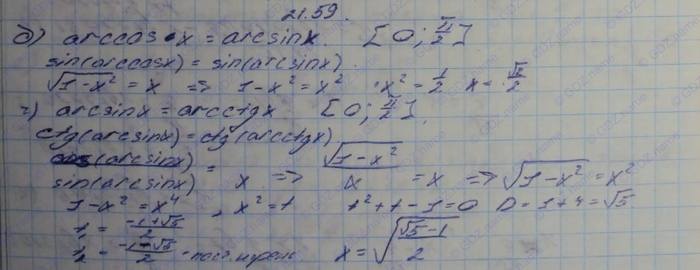 21.59.
б) arccos x = arcsin x. [0; π/2]
sin(arccos x) = sin(arcsin x).
√(1-x²) = x => 1-x² = x² x² = 1/2 x = √2/2
г) arcsin x = arcctg x [0; π/2].
ctg(arcsin x) = ctg(arcctg x)
cos(arcsin x)/sin(arcsin x) = x => √(1-x²)/x = x => √(1-x²) = x²
1-x² = x⁴, x² = t t²+t-1=0 D=1+4=√5
t₁ = (-1+√5)/2
t₂ = (-1-√5)/2 - x = √((√5-1)/2)
GDZ.name